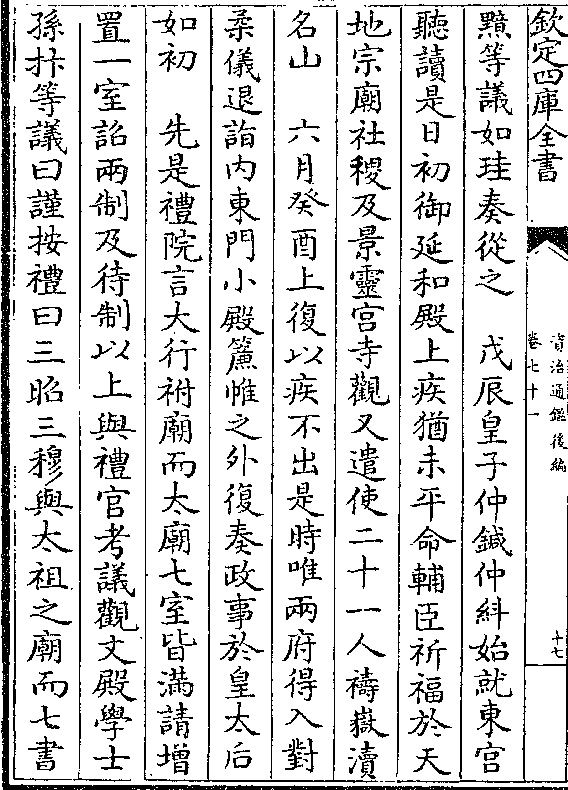 欽定四庫全書
資治通鑑後編
卷七十一
十七
黯等議如珪奏從之　戊辰皇子仲鍼仲糾始就東宮
聽讀是日初御延和殿上疾猶未平命輔臣祈福於天
地宗廟社稷及景靈宮寺觀又遣使二十一人禱嶽瀆
名山　六月癸酉上復以疾不出是時唯兩府得入對
柔儀退詣内東門小殿簾帷之外復奏政事於皇太后
如初　先是禮院言大行祔廟而太廟七室皆滿請增
置一室詔兩制及待制以上與禮官考議觀文殿學士
孫抃等議曰謹按禮曰三昭三穆與太祖之廟而七書